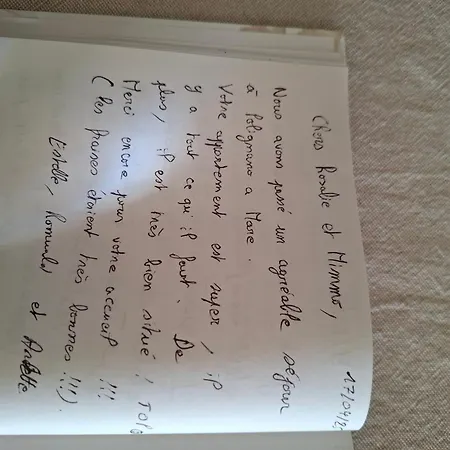 17/04/2
Chers Rosalie et Mimmo,
Nous avons passé un agréable séjour
à Polignano a Mare.
Votre appartement est super, il
y a tout ce qu'il faut. De
plus, il est très bien situé ! TOP
Merci encore pour votre accueil !!!
( les fraises étaient très bonnes !!!).
Estelle, Romuald et